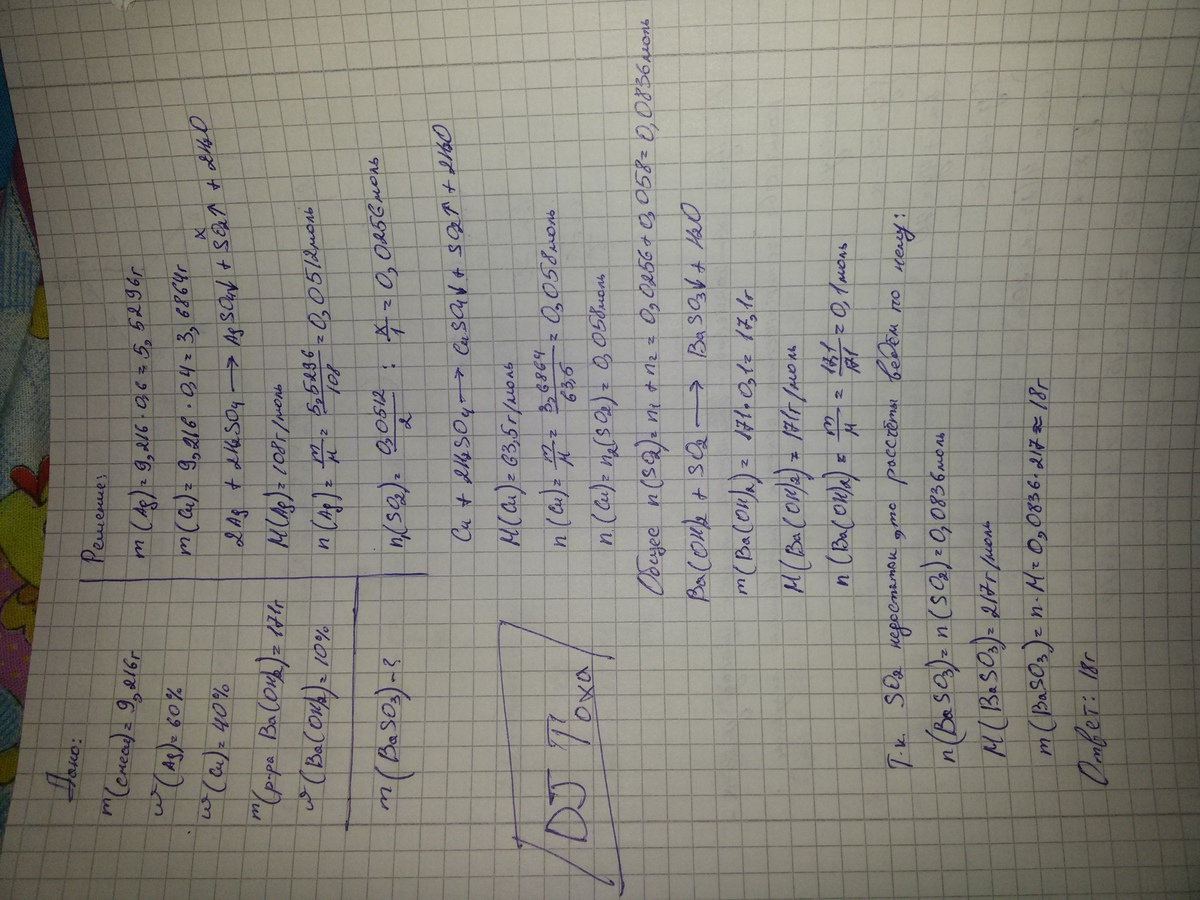 Дано:
m(смеси)=9,216г
w(Ag)=60%
w(Cu)=40%
m(р-ра Ba(OH)2)=171г
w(Ba(OH)2)=10%
m(BaSO3)-?
DJ Π
οχα
Решение:
m(Ag)=9,216·0,6=5,5296г
m(Cu)=9,216·0,4=3,6864г
x
2Ag + 2H2SO4 → AgSO4↓ + SO2↑ + 2H2O
M(Ag)=108г/моль
n(Ag)=m/M=5,5296/108=0,0512моль
n1(SO2)=0,0512/2 : x/1=0,0256моль
Cu + 2H2SO4 → CuSO4↓ + SO2↑ + 2H2O
M(Cu)=63,5г/моль
n(Cu)=m/M=3,6864/63,5=0,058моль
n(Cu)=n2(SO2)=0,058моль
Общее n(SO2)=n1+n2=0,0256+0,058=0,0836моль
Ba(OH)2 + SO2 → BaSO3↓ + H2O
m(Ba(OH)2)=171·0,1=17,1г
M(Ba(OH)2)=171г/моль
n(Ba(OH)2)=m/M=17,1/171=0,1моль
Т.к. SO2 недостаток, то рассчёты ведём по нему:
n(BaSO3)=n(SO2)=0,0836моль
M(BaSO3)=217г/моль
m(BaSO3)=n·M=0,0836·217≈18г
Ответ: 18г